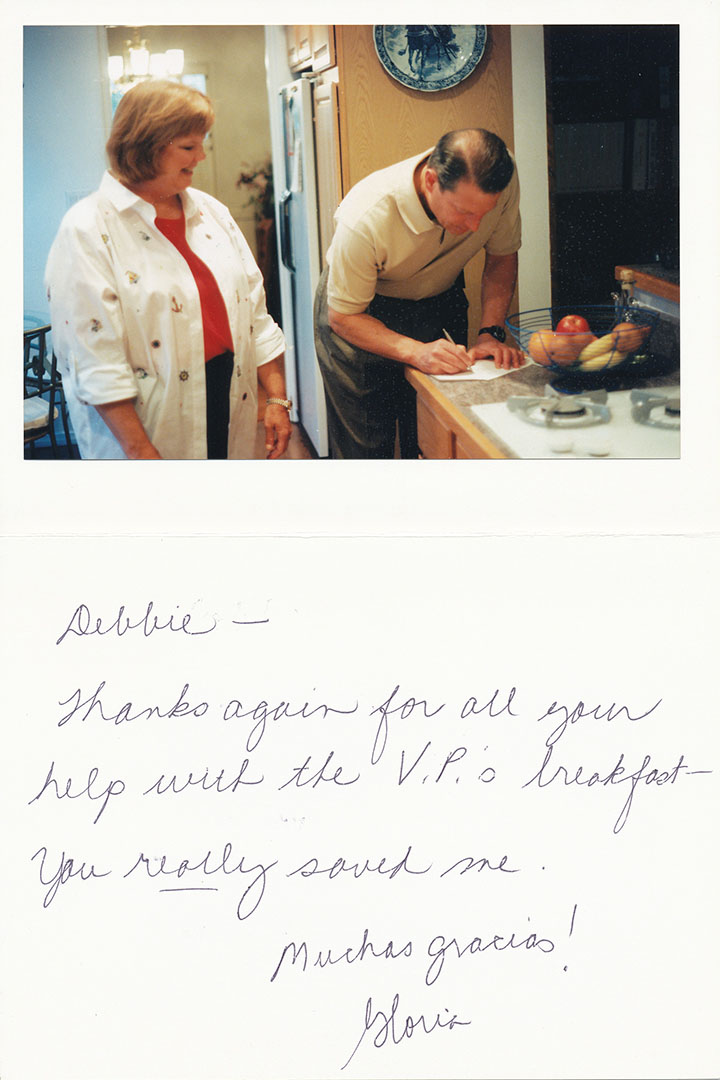 Debbie —
Thanks again for all your
help with the V.P.'s breakfast—
You really saved me.
Muchas gracias!
Gloria